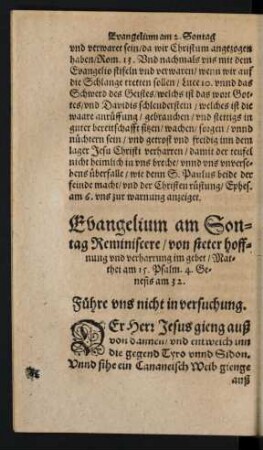 Evangelium am 2. Sontag
vnd verwaret sein/da wir Christum angezogen
haben/Rom. 13. Vnd nachmals vns mit dem
Evangelio stifeln vnd verwaren/ wenn wir auff
die Schlange tretten sollen/ Luce 10. vnnd das
Schwerd des Geistes/welchs ist das wort Got-
tes/vnd Davidis schlenderstein/ welches ist die
waare anrüffung/ gebrauchen/ vnd stettigs in
guter bereitschafft sitzen/ wachen/ sorgen/ vnnd
nüchtern sein/ vnd getrost vnd freidig inn dem
lager Jesu Christi verharren/ damit der teufel
nicht heimlich in vns breche/ vnnd vns vnverse-
hens überfalle/ wie denn S. Paulus beide der
feinde macht/vnd der Christen rüstung/ Ephes.
am 6. vns zur warnung anzeiget.
Evangelium am Son-
tag Reminiscere/ von steter hoff-
nung vnd verharrung im gebet/ Mat-
thei am 15. Psalm. 4. Ge-
nesis am 32.
Führe vns nicht in versuchung.
DEr Herr Jesus gieng auß
von dannen/ vnd entweich inn
die gegend Tyro vnnd Sidon.
Vnnd sihe ein Cananeisch Weib gienge
auß